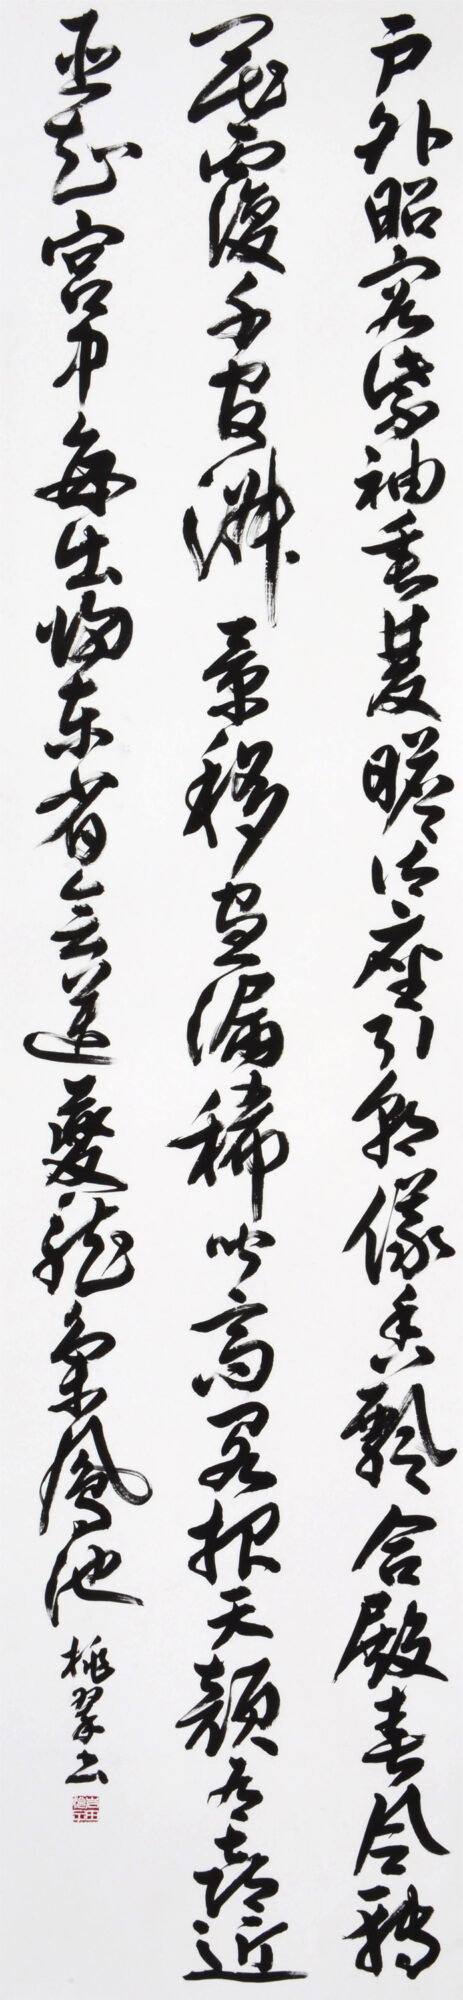 戸外昭容紫袖垂雙瞻御座引朝儀香飄合殿春風轉
花覆千官淑景移晝漏稀聞高閣報天顔有喜近
臣知宮中毎出歸東省會送夔龍集鳳池
桃翠書